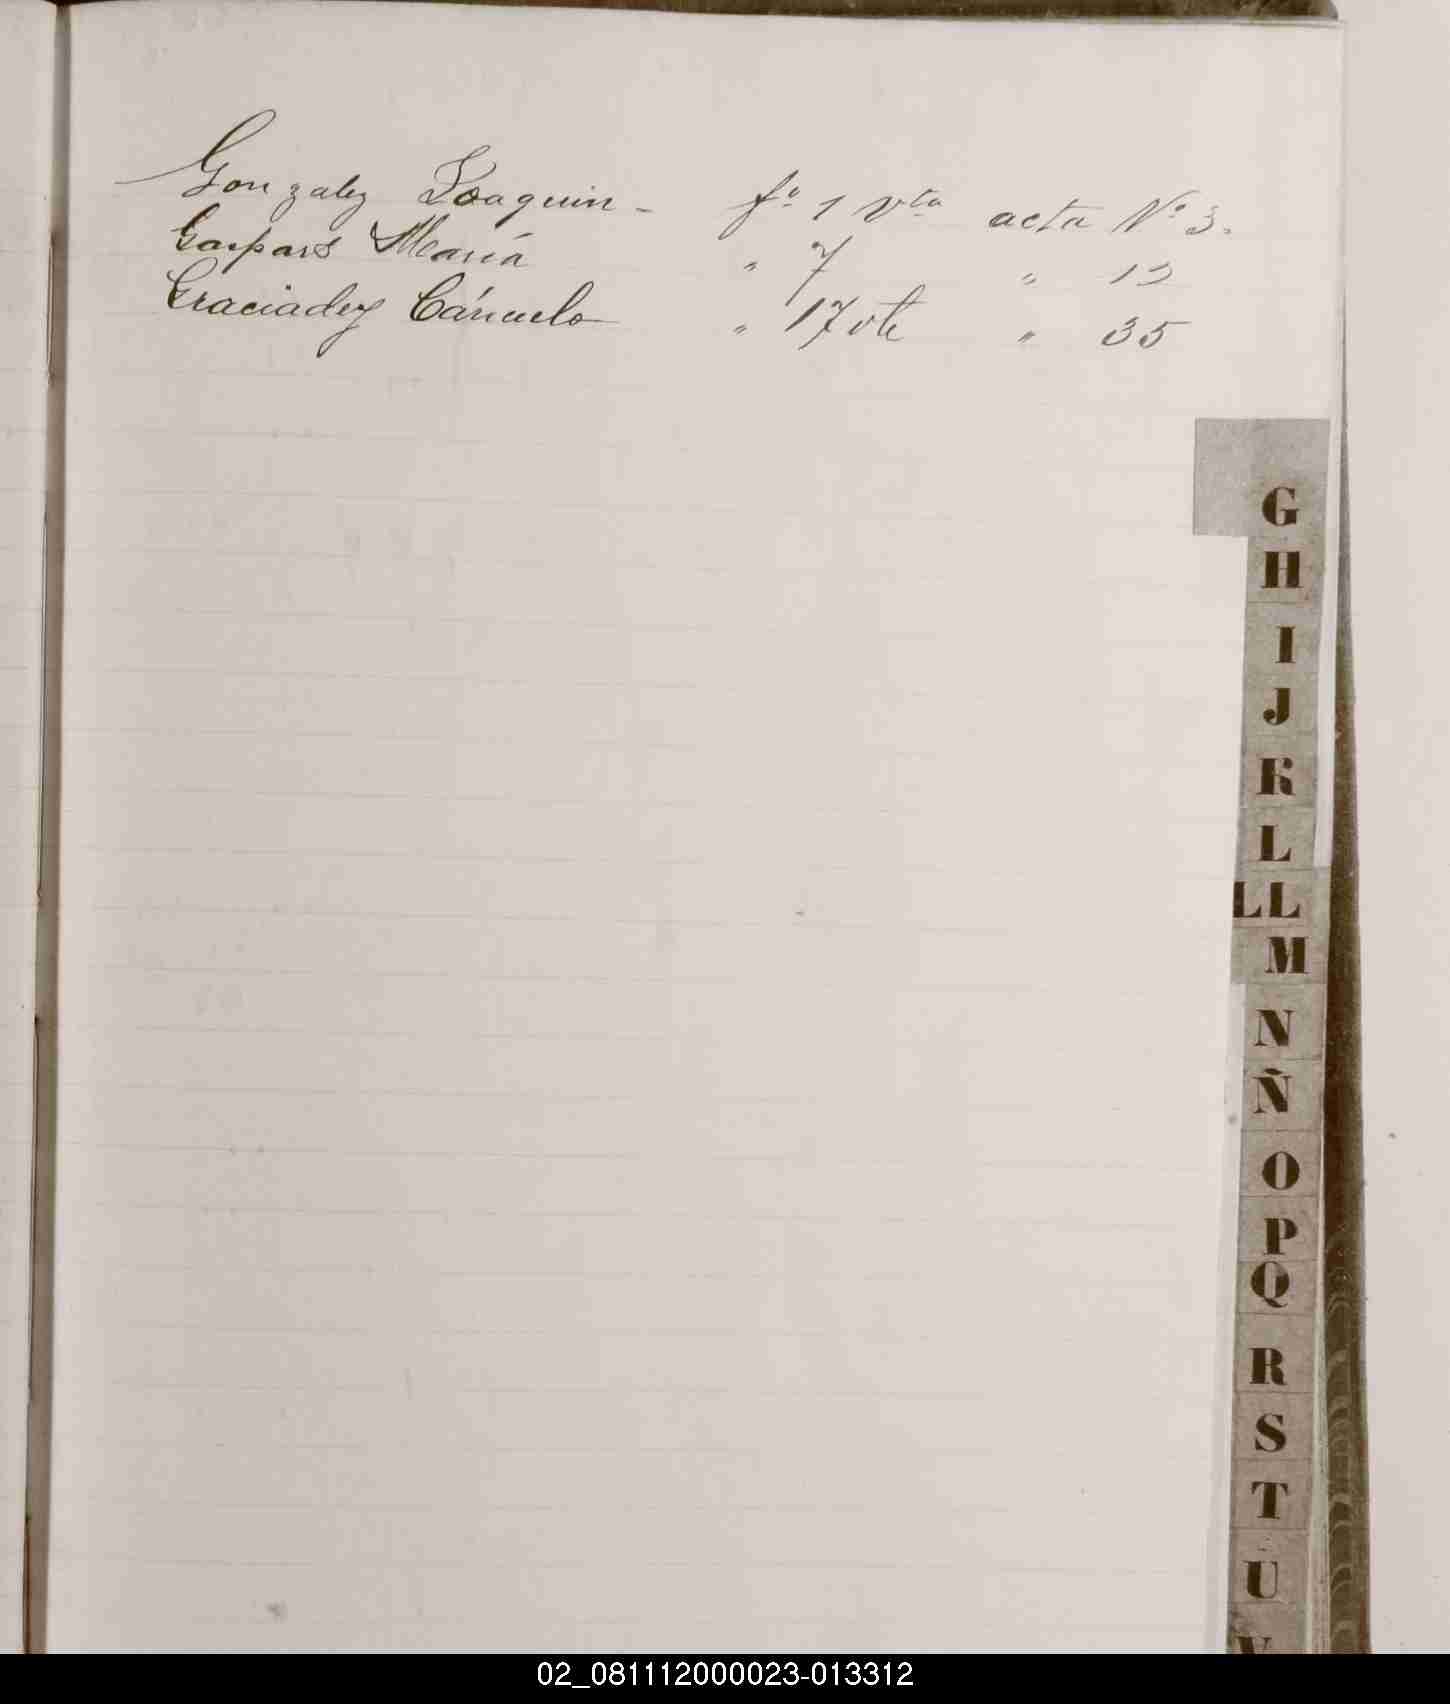 Gonzalez Joaquin - fº 1 vta acta Nº 3.
Gaspars María " 7 " 13
Graciadey Cáruelo " 17 vte " 35
G
H
I
J
K
L
LL
M
N
Ñ
O
P
Q
R
S
T
U
V
02_081112000023-013312